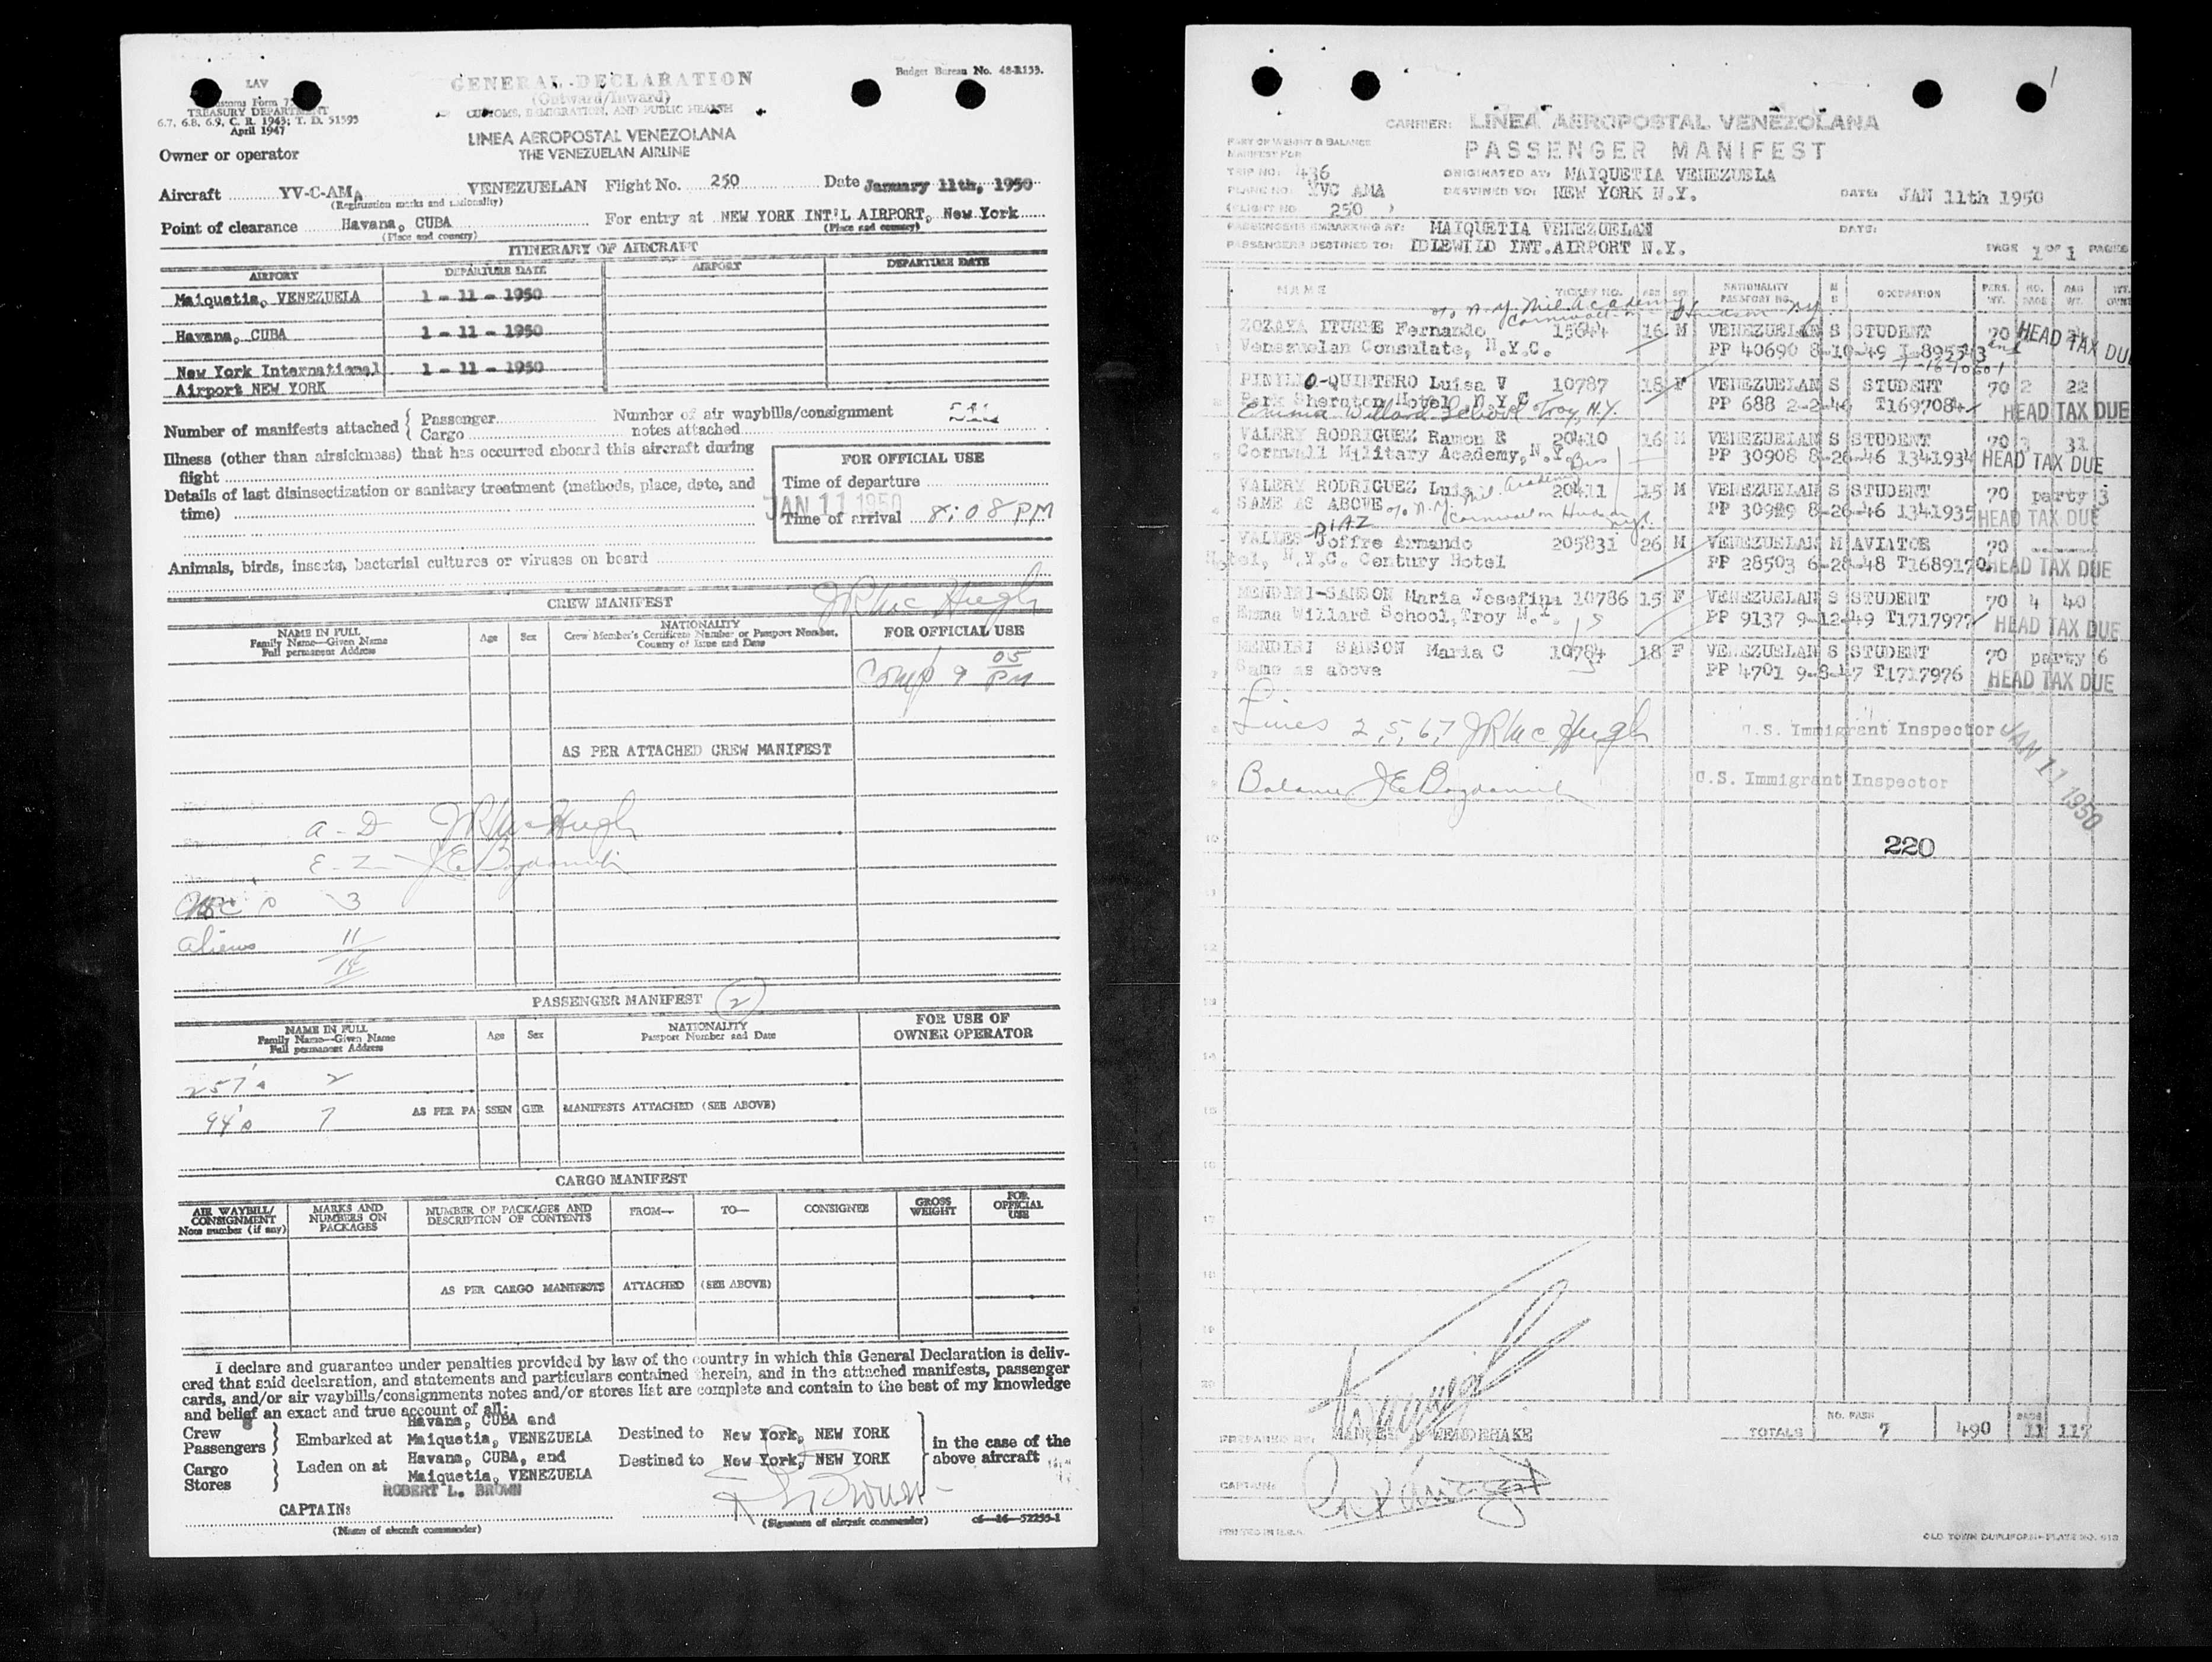 LAV
Budget Bureau No. 48-R133.
GENERAL DECLARATION
(Outward/Inward)
Customs Form
TREASURY DEPARTMENT
CUSTOMS, IMMIGRATION, AND PUBLIC HEALTH
6.7, 6.8, 6.9, C. R. 1943; T. D. 51595
April 1947
LINEA AEROPOSTAL VENEZOLANA
THE VENEZUELAN AIRLINE
Owner or operator
Aircraft YV-C-AMA VENEZUELAN Flight No. 250 Date January 11th, 1950
(Registration marks and nationality)
Point of clearance Havana, CUBA For entry at NEW YORK INT'L AIRPORT, New York
(Place and country) (Place and country)
ITINERARY OF AIRCRAFT
AIRPORT DEPARTURE DATE AIRPORT DEPARTURE DATE
Maiquetia, VENEZUELA 1 - 11 - 1950
Havana, CUBA 1 - 11 - 1950
New York International 1 - 11 - 1950
Airport NEW YORK
Number of manifests attached { Passenger
Cargo
Number of air waybills/consignment
notes attached
Illness (other than airsickness) that has occurred aboard this aircraft during
flight
Details of last disinsectization or sanitary treatment (methods, place, date, and
time)
FOR OFFICIAL USE
Time of departure
JAN 11 1950
Time of arrival 8:08 PM
Animals, birds, insects, bacterial cultures or viruses on board
CREW MANIFEST
JR McHugh
NAME IN FULL
Family Name—Given Name
Full permanent Address
Age Sex
NATIONALITY
Crew Member's Certificate Number or Passport Number,
Country of Issue and Date
FOR OFFICIAL USE
Comp 9 05 PM
AS PER ATTACHED CREW MANIFEST
A - D JR McHugh
E - Z
3
Aliens 11
14
PASSENGER MANIFEST (2)
NAME IN FULL
Family Name—Given Name
Full permanent Address
Age Sex
NATIONALITY
Passport Number and Date
FOR USE OF
OWNER OPERATOR
257's 2
94's 7
AS PER PASSENGER MANIFESTS ATTACHED (SEE ABOVE)
CARGO MANIFEST
AIR WAYBILL/
CONSIGNMENT
Note number (if any)
MARKS AND
NUMBERS ON
PACKAGES
NUMBER OF PACKAGES AND
DESCRIPTION OF CONTENTS
FROM— TO— CONSIGNEE
GROSS
WEIGHT
FOR
OFFICIAL
USE
AS PER CARGO MANIFESTS ATTACHED (SEE ABOVE)
I declare and guarantee under penalties provided by law of the country in which this General Declaration is deliv-
ered that said declaration, and statements and particulars contained therein, and in the attached manifests, passenger
cards, and/or air waybills/consignments notes and/or stores list are complete and contain to the best of my knowledge
and belief an exact and true account of all:
Crew
Passengers } Embarked at Havana, CUBA and
Maiquetia, VENEZUELA Destined to New York, NEW YORK
Cargo
Stores } Laden on at Havana, CUBA, and
Maiquetia, VENEZUELA Destined to New York, NEW YORK
in the case of the
above aircraft
ROBERT L. BROWN
CAPTAIN:
(Name of aircraft commander) (Signature of aircraft commander) 16-52255-1
CARRIER: LINEA AEROPOSTAL VENEZOLANA
PASSENGER MANIFEST
PART OF WEIGHT & BALANCE
MANIFEST FOR
TRIP NO: 436 ORIGINATED AT: MAIQUETIA VENEZUELA
PLANE NO: YVC AMA DESTINED TO: NEW YORK N.Y. DATE: JAN 11th 1950
(FLIGHT NO 250 )
PASSENGERS EMBARKING AT: MAIQUETIA VENEZUELAN DATE:
PASSENGERS DESTINED TO: IDLEWILD INT.AIRPORT N.Y. PAGE 1 OF 1 PAGES
NAME TICKET NO. AGE SEX NATIONALITY PASSPORT NO. M S OCCUPATION PERS. WT. NO. BAGS BAG WT.
c/o N.Y. Mil. Academy Cornwall on Hudson N.Y.
ZOZAYA ITURBE Fernando 15644 16 M VENEZUELAN S STUDENT 70 HEAD TAX DUE
Venezuelan Consulate, N.Y.C. PP 40690 8-10-49
PINILLO-QUINTERO Luisa V 10787 18 F VENEZUELAN S STUDENT 70 2 22
Park Sheraton Hotel, N.Y.C. PP 688 2-2-49 T1697084 HEAD TAX DUE
Emma Willard School Troy, N.Y.
VALERY RODRIGUEZ Ramon E 20410 16 M VENEZUELAN S STUDENT 70 3 31
Cornwall Military Academy, N.Y. PP 30908 8-26-46 1341934 HEAD TAX DUE
VALERY RODRIGUEZ Luis 20411 15 M VENEZUELAN S STUDENT 70 party 3
SAME AS ABOVE c/o N.Y. Mil. Academy Cornwall on Hudson N.Y. PP 30929 8-26-46 1341935 HEAD TAX DUE
VALLES DIAZ Joffre Armando 205831 26 M VENEZUELAN M AVIATOR 70
Hotel, N.Y.C. Century Hotel PP 28503 6-28-48 T1689170 HEAD TAX DUE
MENDIRI-SANSON Maria Josefina 10786 15 F VENEZUELAN S STUDENT 70 4 40
Emma Willard School, Troy N.Y. PP 9137 9-12-49 T1717977 HEAD TAX DUE
MENDIRI SANSON Maria C 10784 18 F VENEZUELAN S STUDENT 70 party 6
Same as above PP 4701 9-8-47 T1717976 HEAD TAX DUE
Lines 2,5,6,7 JR McHugh U.S. Immigrant Inspector
JAN 11 1950
Balance U.S. Immigrant Inspector
220
TOTALS NO. PASS 7 490 BAGS 11 117
PREPARED BY:
CAPTAIN:
PRINTED IN U.S.A.
OLD TOWN DUPLIFORM-PLATE NO.